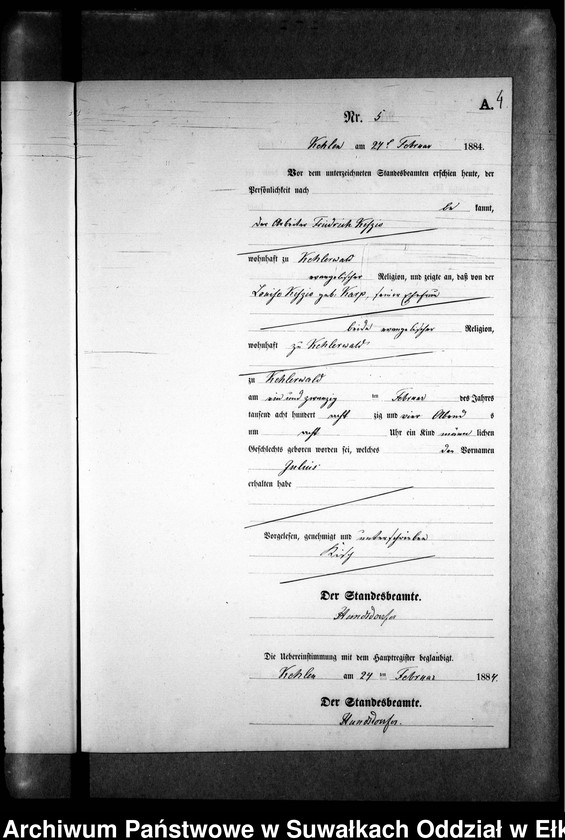 A. 4
Nr. 5
Kehlen am 24t Februar 1884.
Vor dem unterzeichneten Standesbeamten erschien heute, der
Persönlichkeit nach
be kannt,
der Arbeiter Friedrich
wohnhaft zu Kehlerwald
evangelischer Religion, und zeigte an, daß von der
Louise geb. Karp, seiner Ehefrau
beide evangelischer Religion,
wohnhaft zu Kehlerwald
zu Kehlerwald
am ein und zwanzig ten Februar des Jahres
tausend acht hundert acht zig und vier Abend s
um acht Uhr ein Kind männ lichen
Geschlechts geboren worden sei, welches den Vornamen
Julius
erhalten habe
Vorgelesen, genehmigt und unterschrieben
Der Standesbeamte.
Hundsdorfer
Die Uebereinstimmung mit dem Hauptregister beglaubigt.
Kehlen am 24 ten Februar 1884.
Der Standesbeamte.
Hundsdorfer.
Archiwum Państwowe w Suwałkach Oddział w Ełk